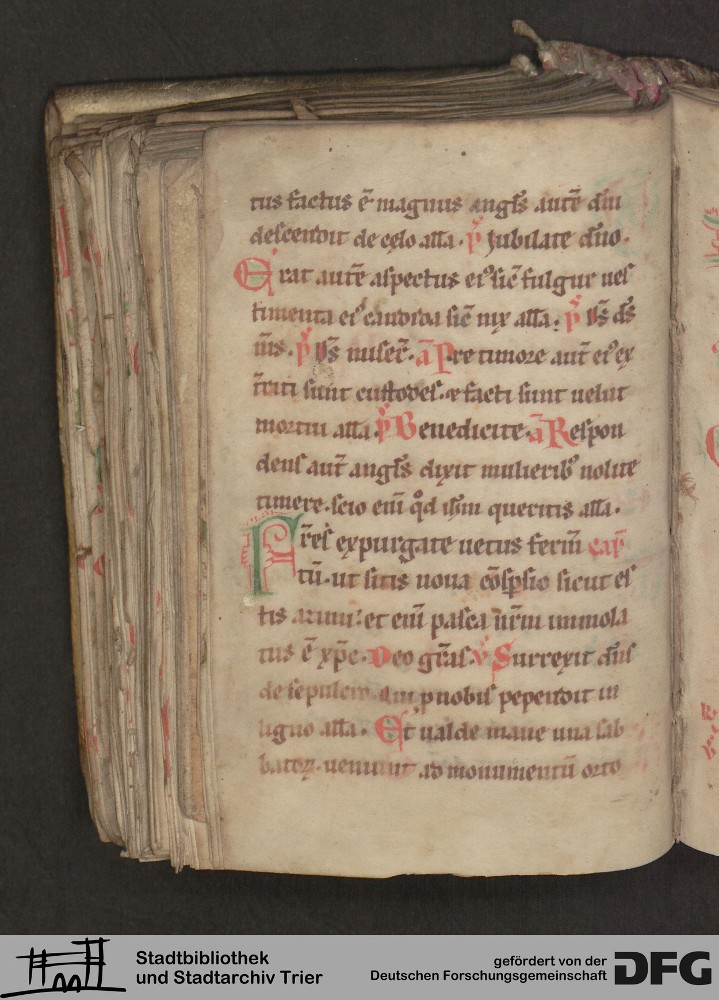 tus factus ē magnus angłs autē dñi
descendit de cęlo ałła. p̃ Jubilate dño.
Erat autē aspectus ei᾽ sic̄ fulgur ues
timenta ei᾽ candida sic̄ nix ałła. p̃ Ds̄ ds̄
m̄s. p̃ Ds̄ miser̄. ā Pre timore aut̄ ei᾽ ex
t̄riti sunt custodes. ⁊ facti sunt uelut
mortui ałła. p̃ Benedicite. ā Respon
dens aut̄ angłs dixit mulierib᾽ nolite
timere. scio eni᷑ qđ ihm̄ queritis ałła.
Fr̄es expurgate uetus ferm̄ cap̄
tū. ut sitis noua cōspsio sicut es
tis azimi. et eni᷑ pasca nr̄m immola
tus ē xp̄c. Deo gr̄as. v̄ Surrexit dñs
de sepulcro. qui p nobis pependit in
ligno ałła. Et ualde mane una sab
batoꝝ. ueniunt ad monumentū orto
Stadtbibliothek
und Stadtarchiv Trier
gefördert von der
Deutschen Forschungsgemeinschaft
DFG